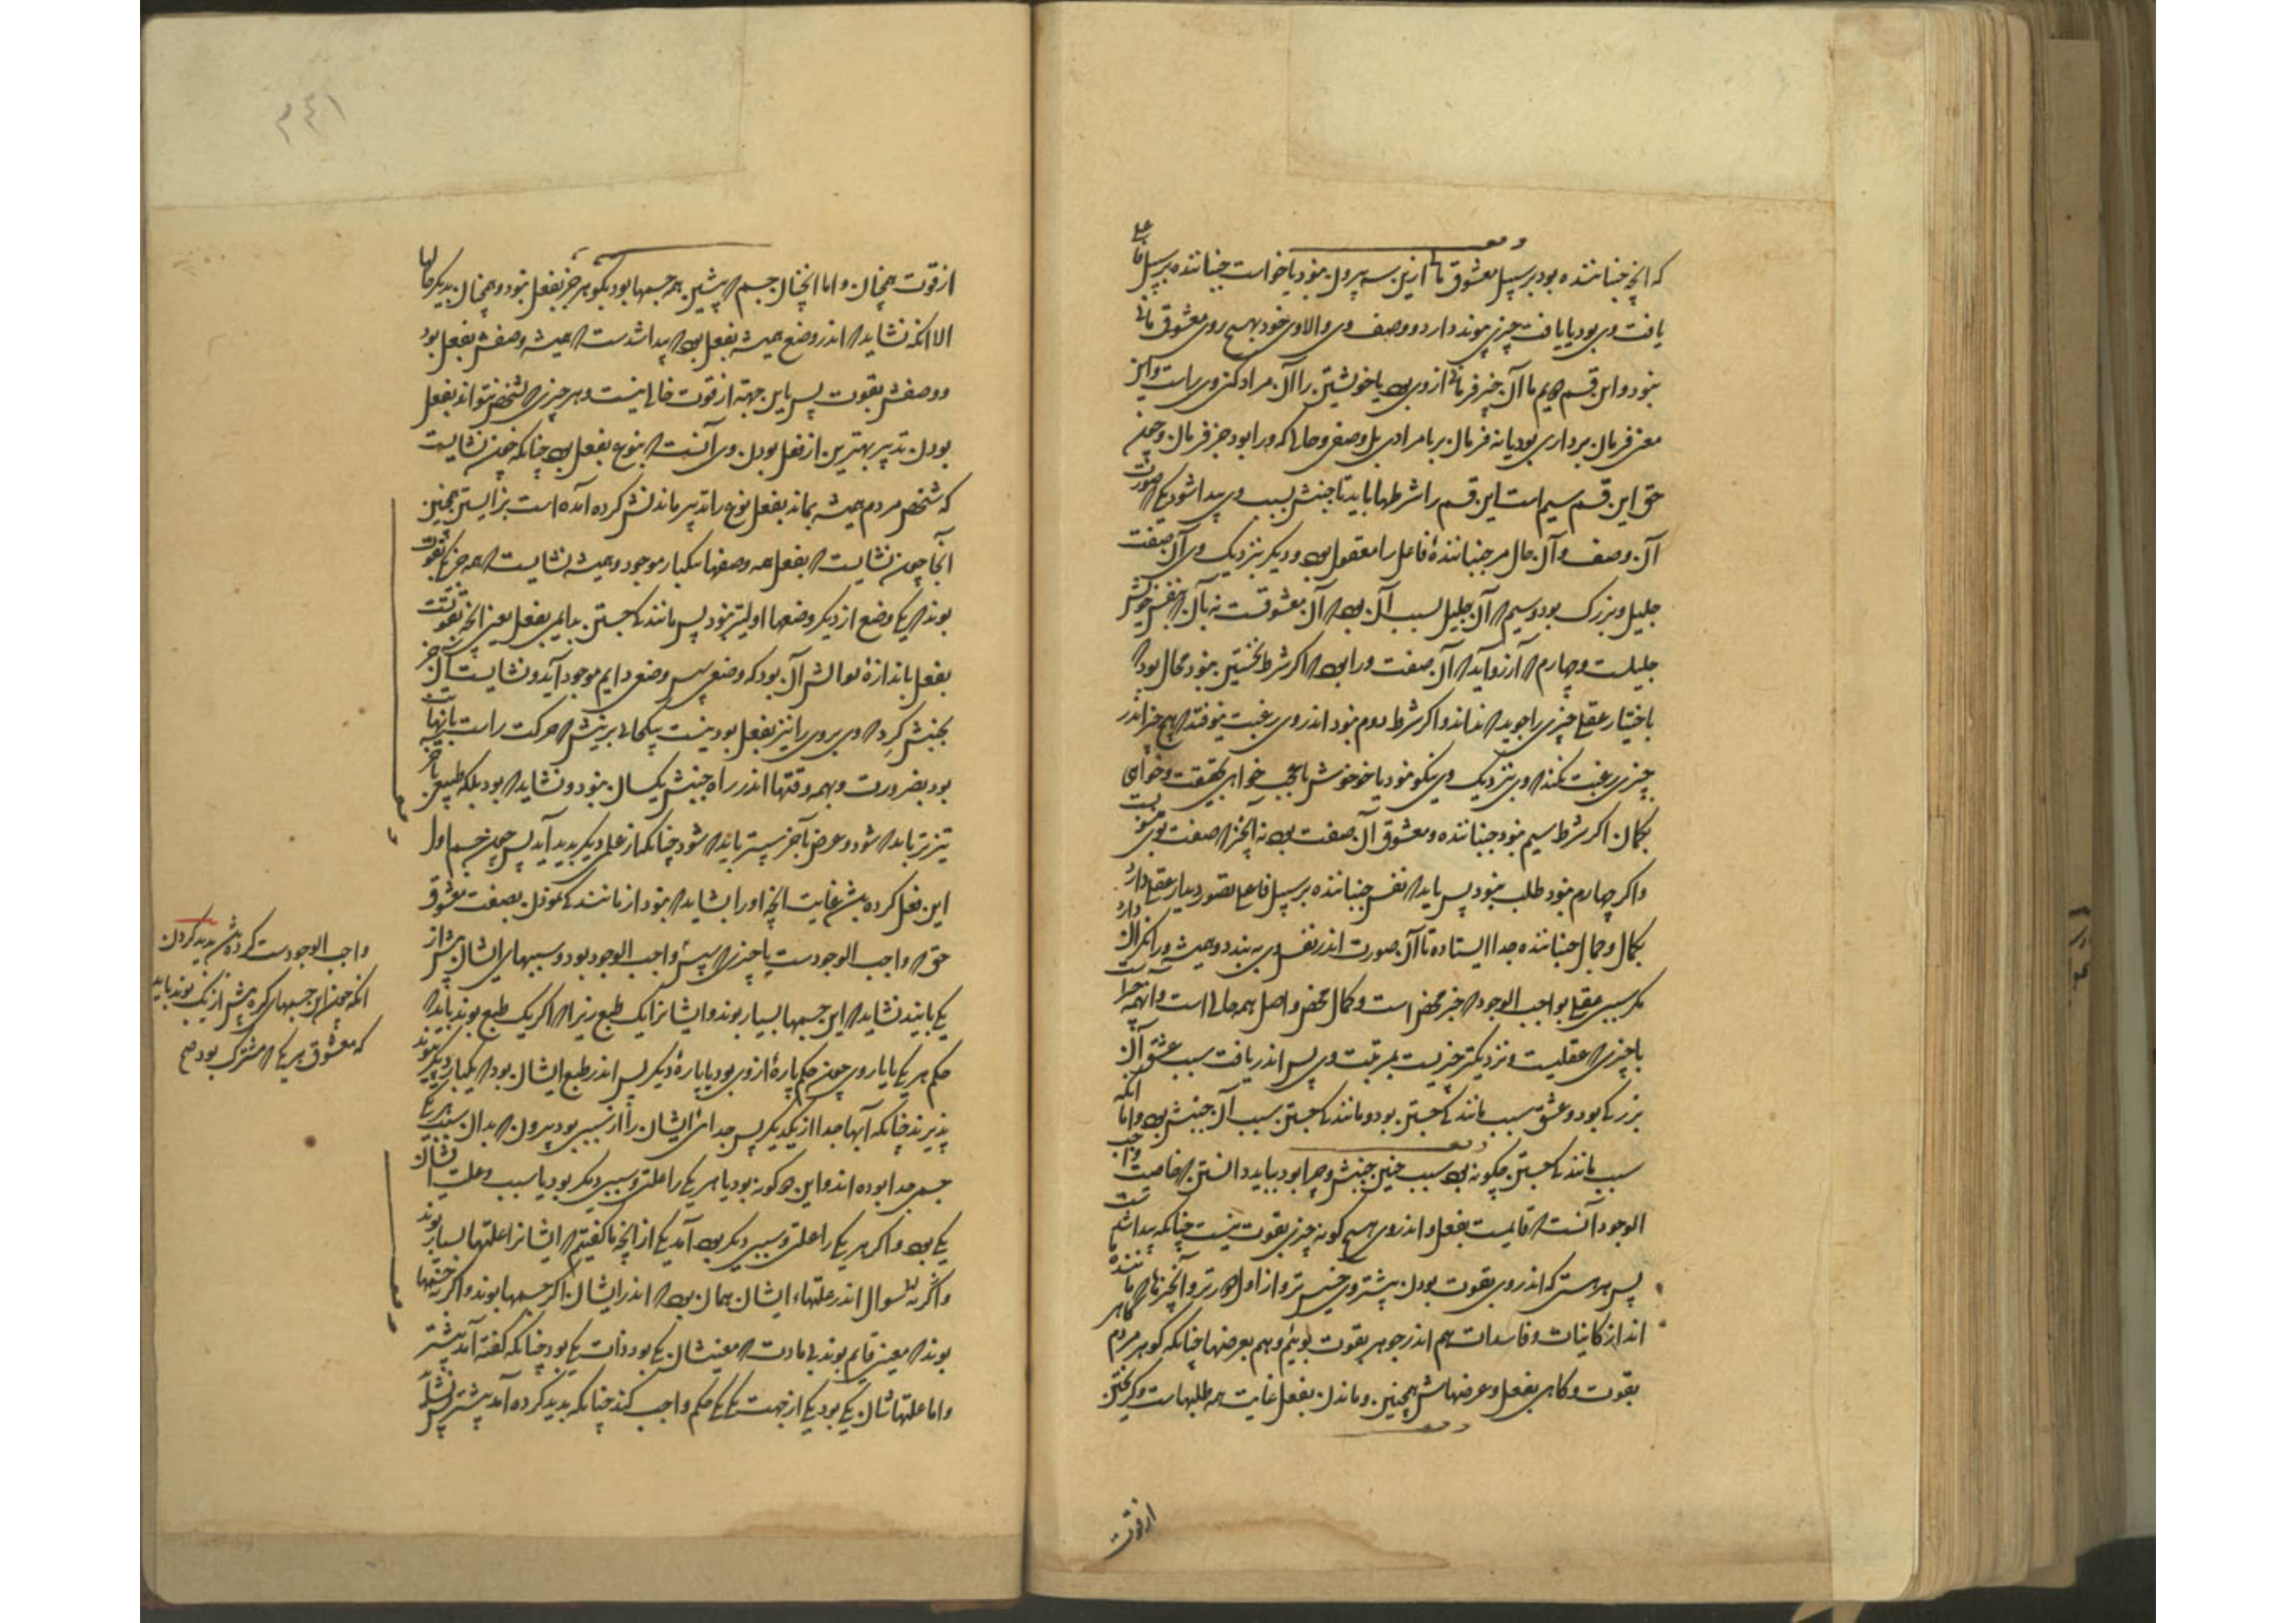 که انچه جنباننده بود بر سبیل معشوق ما ازین سه بیرون نبود یا خواست جنباننده بر سبیل
یافت وی بود یا یافت چیزی پیوند دارد و وصف وی والا وی خود بهیچ روی معشوق
نبود و این قسم دویم ما آن چیز فرمانی از وی بود یا خویشتن را آن مراد کند وی راست و این
معنی فرمان برداری بود یا نه فرمان بود یا مرادی بل وصفی و حالی که ورا بود جز فرمان و چون
حق این قسم سیم است این قسم را شرطها باید تا جنبش بسبب وی پیدا شود یکی که صورت
آن وصف و آن حال مر جنبانندهٔ فاعل را معقول بود و دیگر بنزدیک وی آن صفت
جلیل و بزرگ بود و سیم که آن جلیل بسبب آن بود که آن معشوقست نه بآن که بنفس خویش
جلیلست و چهارم که آرزو آید که آن صفت ورا بود که اگر شرط نخستین نبود محال بود که
باختیار عقلی چیزی را جوید که نداند و اگر شرط دوم نبود اندر وی رغبت نیوفتد که هیچ چیز اندر
چیزی رغبت نکند که وی بنزدیک وی نیکو نبود یا خوش یا عجب خواهی بحقیقت و خواهی
بگمان اگر شرط سیم نبود جنباننده و معشوق آن صفت بود نه آنچیز که صفت
و اگر چهارم نبود طلب نبود پس باید که نفس جنباننده بر سبیل فاعلی تصور و دیدار عقلی دارد
بکمال و جمال جنباننده جدا ایستاده تا آن صورت اندر نفس وی به بندد و همیشه ورا نگران دارد
مگر سببی عقلی بواجب الوجود که خیر محض است و کمال محض و اصل همه حالی است و انهمه
یا چیزی که عقلیست و نزدیکتر چیزیست بمرتبت وی پس اندر یافت سبب عشق آن
بزرگی بود و عشق سبب مانندگی جستن بود و مانندگی جستن سبب آن جنبش بود و اما انکه
سبب مانندگی جستن چگونه بود سبب چنین جنبش و چرا بود بباید دانستن که خاصیت واجب
الوجود آنست که قایمست بفعل و اندر وی هیچ گونه چیزی بقوت نیست چنانکه پیدا شدست
پس هر هستی که اندر وی بقوت بودن بیشتر وی خسیس تر و از اول دورتر و آنچیزها که ماننده
اند از کاینات و فاسدات هم اندر جوهر بقوت بوند و هم بعرضها چنانکه گوهر مردم گاهی
بقوت و گاهی بفعل و عرضهاش همچنین و ماندن بفعل غایت همه طلبهاست و گریختن
از قوت
۲۴۱
از قوت همچنان و اما انچنان جسم که پیشین همه جسمها بود بگوهر جز بفعل نبود و همچنان بدیگر حالها
الا انکه نشاید که اندر وضع همیشه بفعل بود که پیدا شدست که همیشه وصفش بفعل بود
و وصفش بقوت پس باین جهة از قوت خالی نیست و هر چیزی که بشخص نتواند بفعل
بودن تدبیر بهترین از فعل بودن وی آنست که بنوع بفعل بود چنانکه چون نشایست
که شخص مردم همیشه بماند بفعل نوع را تدبیر ماندنش کرده آمده است بزایستن همچنین
آنجا چون نشایست که بفعل همه وصفها یکبار موجود و همیشه نشایست که همه بقوت
بوند که یکی وضع از دیگر وضعها اولیتر نبود پس مانندگی جستن بدایمی بفعل یعنی انچه بقوتست
بفعل باندازهٔ توانش آن بود که وضعی سپس وضعی دایم موجود آید و نشایست آن جز
بجنبش گرد که وی بر وی را نیز بفعل بود نیست بیکحالی بر نیش که حرکت راست بانها
بود بضرورت و بهمه وقتها اندر راه جنبش یکسان نبود و نشاید که بود بلکه طبیعی باخر
تیزتر باید که شود و عرضی بآخر سستر باید که شود چنانکه از علمی دیگر پدید آید پس چون جسم اول
این فعل کرد بیش غایت انچه او را بشاید که بود از مانندگی نمودن بصفت معشوق
حق که واجب الوجودست یا چیزی که سپس واجب الوجود بود و سببهای ایشان بیش از
یکی بایند نشاید که این جسمها بسیار بوند و ایشانرا یک طبع زیرا که اگر یک طبع بوند باید که
حکم هر یکی با یار وی چون حکم پارهٔ از وی بود با پارهٔ دیگر پس اندر طبع ایشان بود که یکبار دیگر پیوند
پذیرند چنانکه آبها جدا از یکدیگر پس جدای ایشان را از سببی بود بیرون که بدان سبب هر یکی
جسمی جدا بوده اند و این دو گونه بود یا هر یکی را علتی و سببی دیگر بود یا سبب و علت ایشان
یکی بود و اگر هر یکی را علتی و سببی دیگر بود آمد یکی از انچه ما گفتیم که ایشانرا علتها بسیار بوند
و اگر نه سوال اندر علتهاء ایشان همان بود که اندر ایشان اگر جسمها بوند و اگر نه جسمها
بوند که معنی قایم بوند بی مادت که معنیشان یکی بود ذات یکی بود چنانکه گفته آمد پیشتر
و اما علتهاشان یکی بود یکی از جهت یکی یکی حکم واجب کند چنانکه پدید کرده آمد پیشتر پس نشاید
واجب الوجودست کرده شد پدید کردن
انکه چون این جسمهای کره بیش از یک بوند باید
که معشوق هر یکی که مشترک بود صح